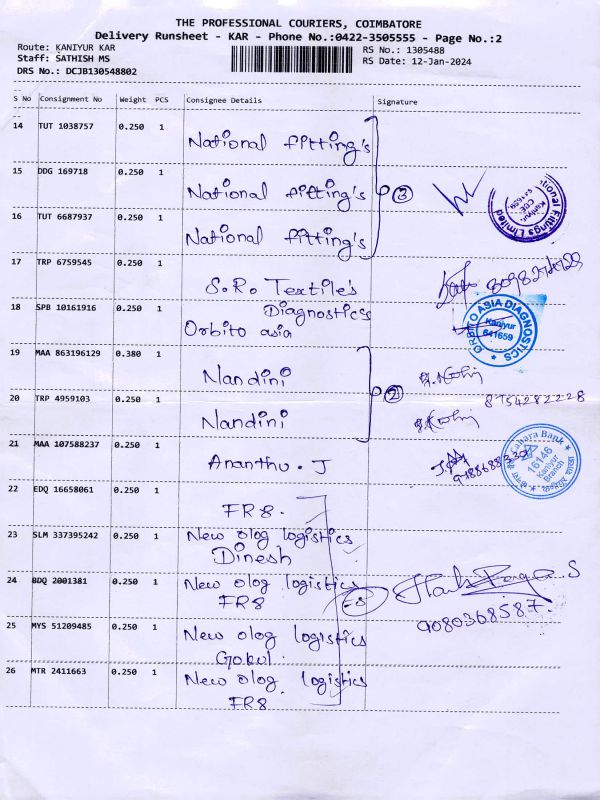 THE PROFESSIONAL COURIERS, COIMBATORE
Delivery Runsheet - KAR - Phone No.:0422-3505555 - Page No.:2
Route: KANIYUR KAR
RS No.: 1305488
Staff: SATHISH MS
RS Date: 12-Jan-2024
DRS No.: DCJB130548802
S No Consignment No Weight PCS Consignee Details Signature
14 TUT 1038757 0.250 1 National fitting's
15 DDG 169718 0.250 1 National fitting's
3
16 TUT 6687937 0.250 1 National fitting's
Fittings Limited
Kaniyur,
17 TRP 6759545 0.250 1 S.R. Textile's
18 SPB 10161916 0.250 1 Orbito asia Diagnostics
ORBITO ASIA DIAGNOSTICS
Kaniyur
641659
19 MAA 863196129 0.380 1 Nandini
2
20 TRP 4959103 0.250 1 Nandini
8754282228
21 MAA 107588237 0.250 1 Ananthu . J
Bank
16146
Kaniyur
Branch
22 EDQ 16658061 0.250 1 FR8.
23 SLM 337395242 0.250 1 New olog logistics
Dinesh
24 BDQ 2001381 0.250 1 New olog logistics
FR8
9080368587.
25 MYS 51209485 0.250 1 New olog logistics
Gokul.
26 MTR 2411663 0.250 1 New olog logistics
FR8.